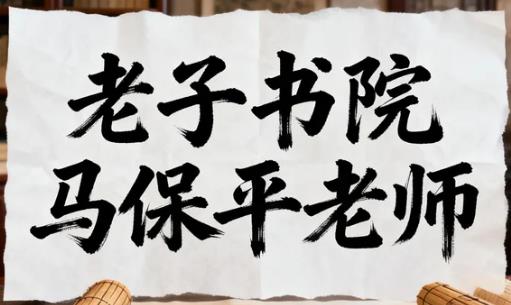 老子书院
马保平老师